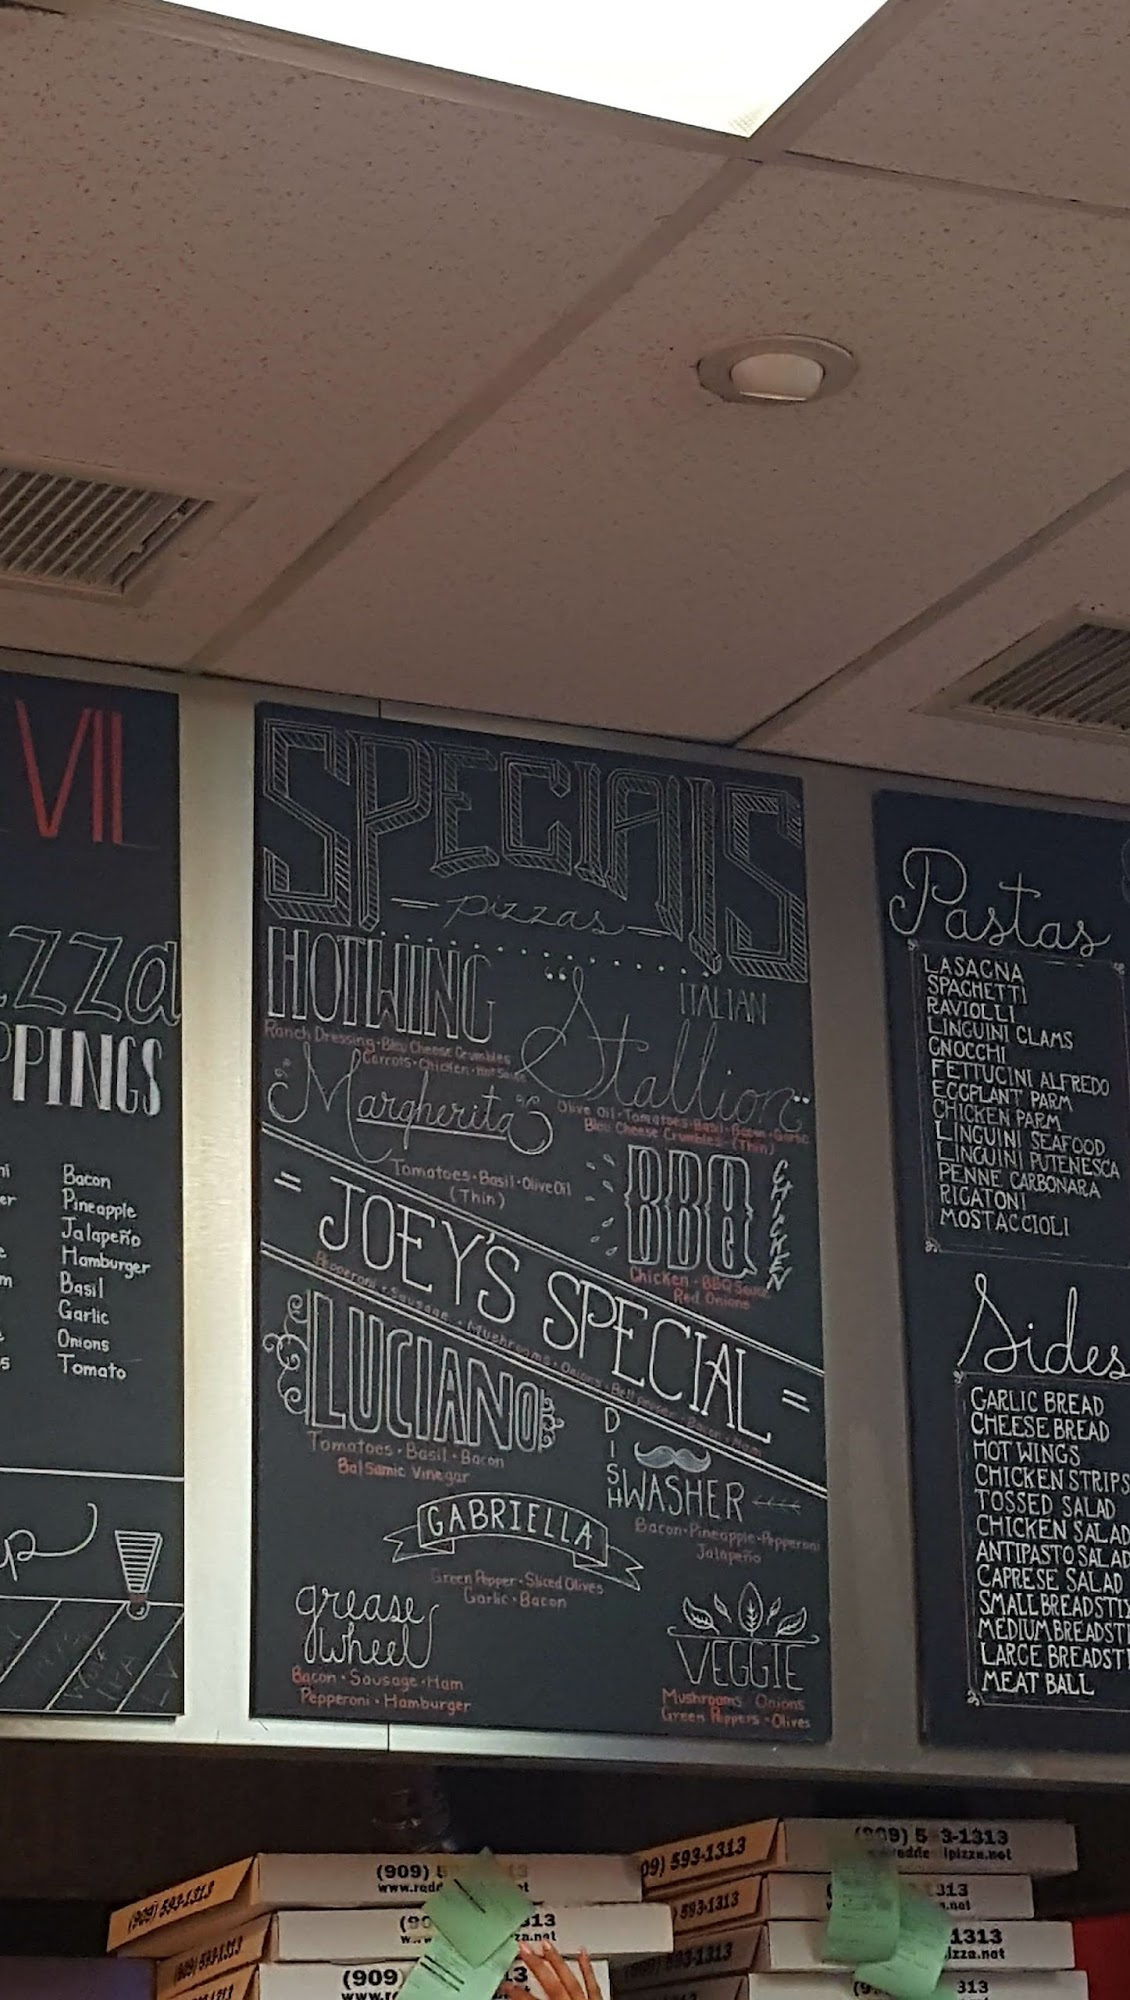 VIL
PPINGS
Bacon
Pineapple
Jalapeño
Hamburger
Basil
Garlic
Onions
Tomato
SPECIALS
pizzas
HOTWING
Ranch Dressing • Bleu Cheese Crumbles
Carrots • Chicken • Hot Sauce
"Stallion"
ITALIAN
Olive Oil • Tomatoes • Basil • Bacon • Garlic
Bleu Cheese Crumbles • (Thin)
Margherita
Tomatoes • Basil • Olive Oil
(Thin)
BBQ
CHICKEN
Chicken • BBQ Sauce
Red Onions
= JOEY'S SPECIAL =
Pepperoni • Sausage • Mushrooms • Onions • Bell Pepper • Bacon • Ham
LUCIANO
Tomatoes • Basil • Bacon
Balsamic Vinegar
DISH
WASHER
Bacon • Pineapple • Pepperoni
Jalapeño
GABRIELLA
Green Pepper • Sliced Olives
Garlic • Bacon
grease
wheel
Bacon • Sausage • Ham
Pepperoni • Hamburger
VEGGIE
Mushrooms Onions
Green Peppers • Olives
Pastas
LASAGNA
SPAGHETTI
RAVIOLLI
LINGUINI CLAMS
GNOCCHI
FETTUCINI ALFREDO
EGGPLANT PARM
CHICKEN PARM
LINGUINI SEAFOOD
LINGUINI PUTENESCA
PENNE CARBONARA
RIGATONI
MOSTACCIOLI
Sides
GARLIC BREAD
CHEESE BREAD
HOT WINGS
CHICKEN STRIPS
TOSSED SALAD
CHICKEN SALAD
ANTIPASTO SALAD
CAPRESE SALAD
SMALL BREADSTI
MEDIUM BREADSTI
LARGE BREADSTI
MEAT BALL
(909) 593-1313
(909) 5 13
www.redd
(909) 593-1313
13
(909) 13
09) 593-1313
(909) 5 3-1313
lpizza.net
593-1313
1313
.net
1313
izza.net
313